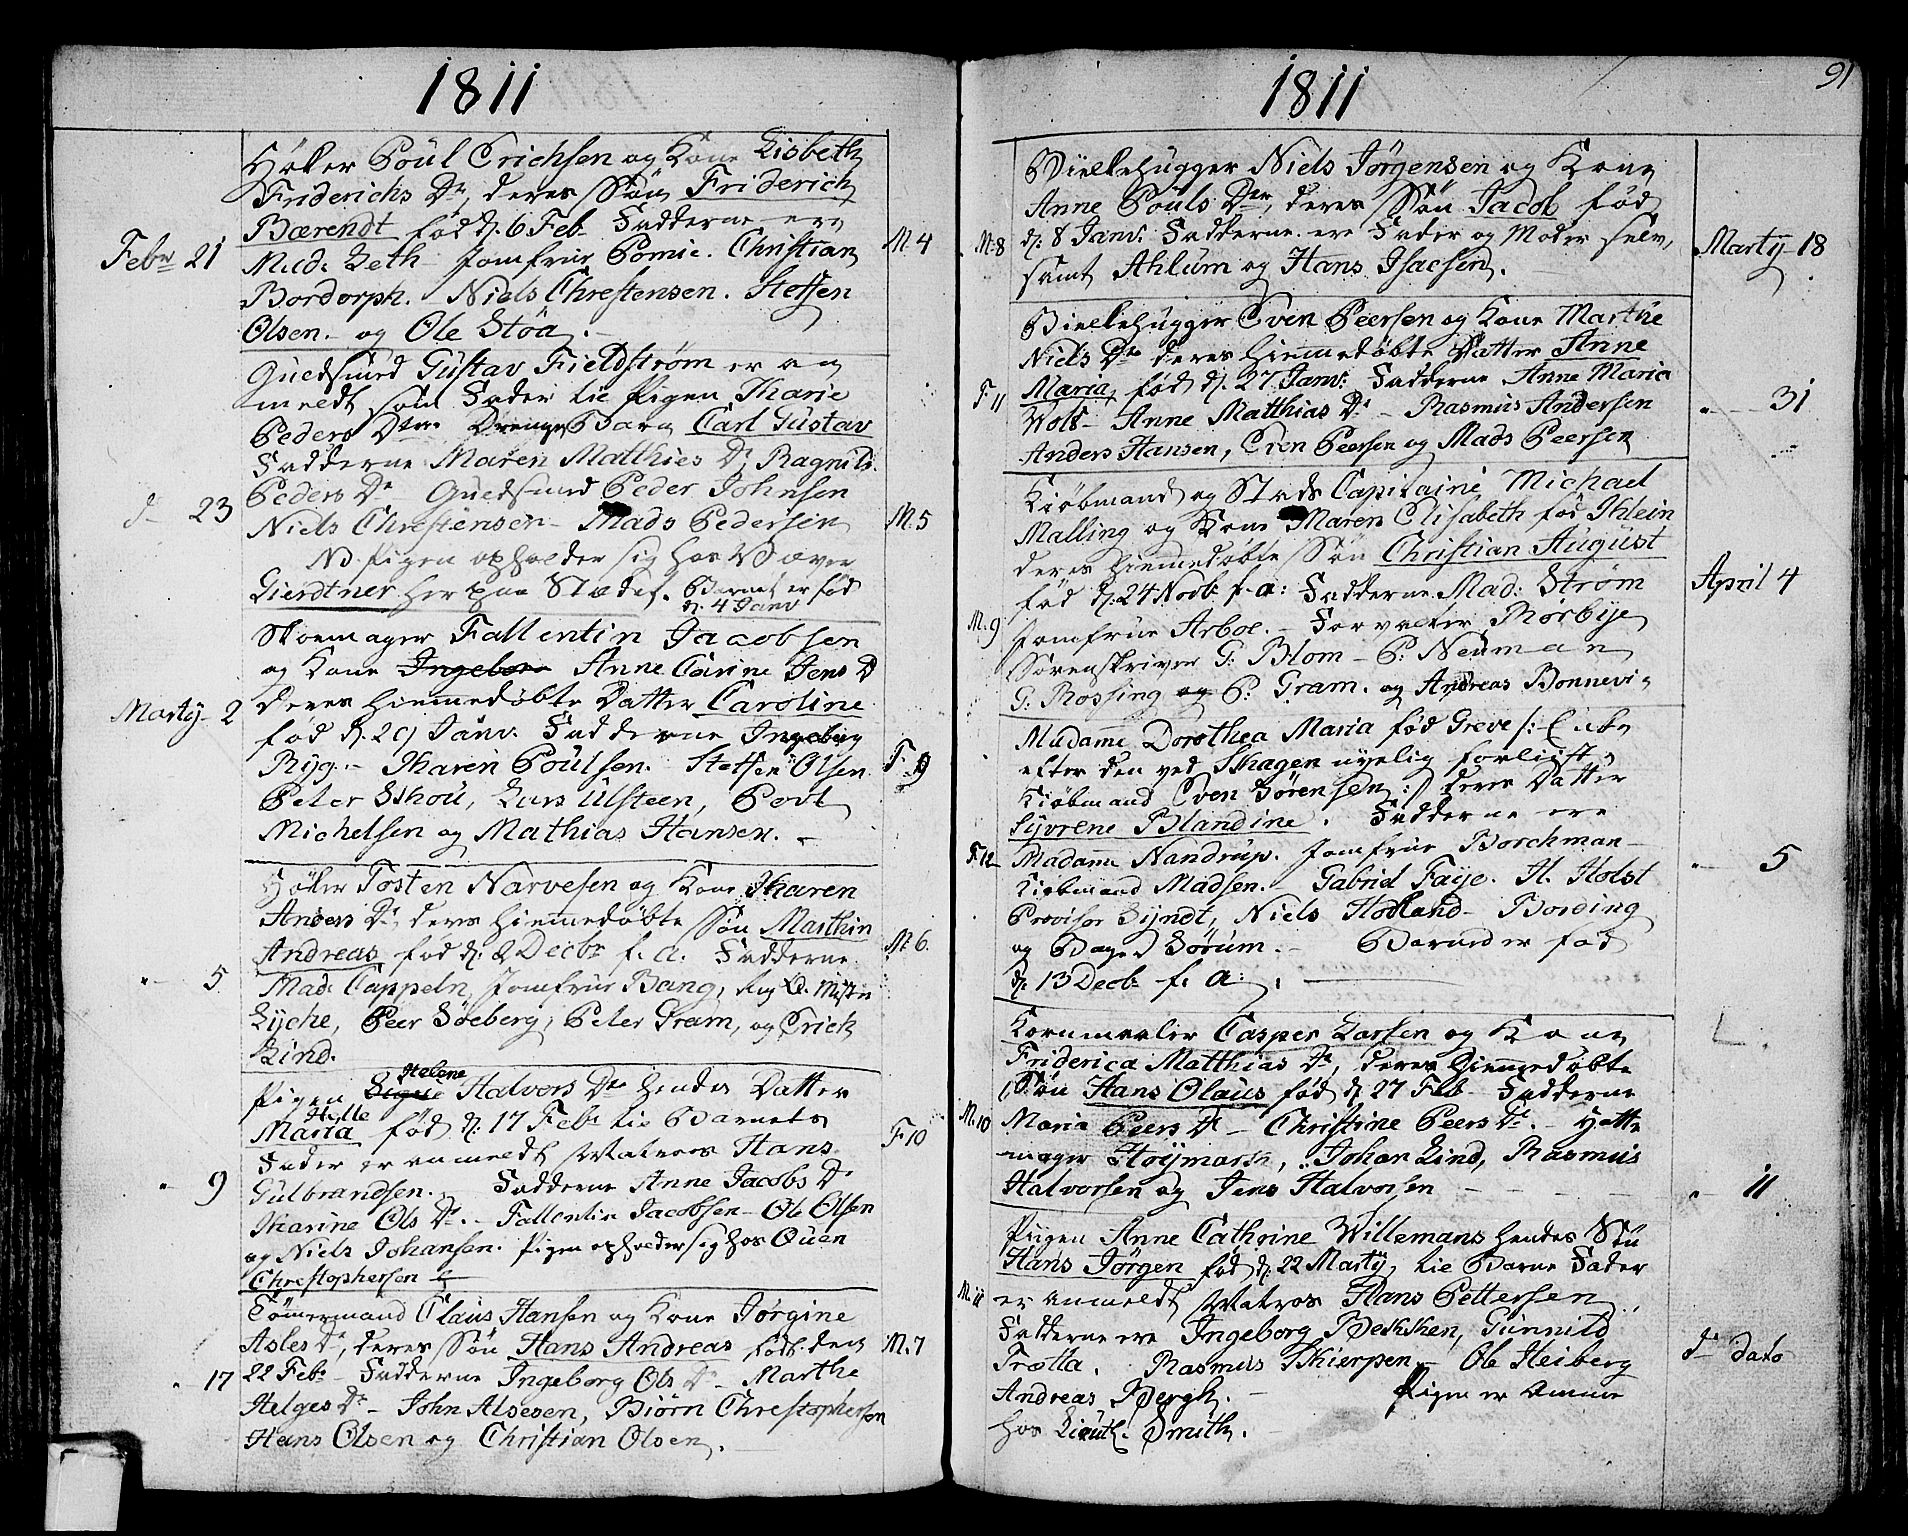 1811
Høker Poul Erichsen og Kone Lisbeth
Friderichs Dr, deres Søn Friderich
Bærendt født d. 6 Feb. Fadderne ere
Febr 21
M. 4
Mad. Leth Jomfrue Pomie. Christian
Bordorph. Niels Chrestensen. Steffen
Olsen. og Ole Støa.
Guldsmed Gustav Fieldstrøm er an
meldt som Fader til Pigen Karie
Peders Dtr. Drenge Barn Carl Gustav
Fadderne Maren Mathies Dr Ragnild
Peders Dr Guldsmed Peder Johnsen
d 23
M. 5
Niels Chrestensen - Mads Pedersen
NB Pigen opholder sig hos Væver
Gierdtner her paa Stædet. Barnet er fød
d. 4 Janv
Skoemager Fallentin Jacobsen
og Kone Ingebor Anne Carine Jens D
Marty 2
deres hiemmedøbte Datter Caroline
fød d. 29 Janv. Fadderne Ingeborg
F. 9
Ryg. - Karen Poulsen. Steffen Olsen
Peter Skou, Lars Ulsteen, Povl
Michelsen og Mathias Hansen. -
Høker Tosten Narvesen og Kone Karen
Anders Dr, deres hiemmedøbte Søn Marthin
Andreas fød d. 2 Decbr f. a. Fadderne
M 6.
" 5
Mad. Cappeln, Jomfrue Bang,
Lyche, Peer Søeberg, Peter Gram, og Erich
Lind.
Helene
Pigen Halvors Dtr hendes Datter
Helle
Maria fød d. 17 Feb. til Barnets
F. 10
Fader er anmeldt Matros Hans
" 9
Gulbrandsen. Fadderne Anne Jacobs Dr
Karine Ols Dr. - Fallentin Jacobsen - Ole Olsen
og Niels Johansen. Pigen opholder sig hos Ouen
Chrestophersen
Tømmermand Claus Hansen og Kone Jørgine
Asles Dr, deres Søn Hans Andreas født den
M. 7
" 17
22 Feb. Fadderne Ingeborg Ols Dr - Marthe
Helges Dr - John Alsesen, Biørn Chrestophersen
Hans Olsen og Christian Olsen.
1811
91
Biælkehugger Niels Jørgensen og Kone
Anne Pouls Dtr, deres Søn Jacob fød
M. 8
d. 8 Janv. Fadderne ere Fader og Moder selv,
Marty 18
samt Ahlum og Hans Isacsen.
Bielkehugger Even Peersen og Kone Marthe
Niels Dr deres hiemmedøbte Datter Anne
F 11
Maria, fød d. 27 Janv. Fadderne Anne Maria
" 31
Wold - Anne Matthias Dr - Rasmus Andersen
Anders Hansen, Even Peersen og Mads Peersen
Kiøbmand og Stads Capitaine Michael
Malling og Kone Maren Elisabeth fød Ihlein
deres hiemmedøbte Søn Christian August
April 4
fød d. 24 Novb. f. a: Fadderne Mad: Strøm
M. 9
Jomfrue Arboe. - Forvalter Rørbye
Sorenskriver G: Blom - P: Neuman
G: Rossing og P: Gram. og Andreas Bonnevi
Madame Dorothea Maria fød Greve /: Enke
efter den ved Skagen nyelig forliiste
Kiøbmand Even Sørensen :/ deres Datter
Syvrene Blandine. Fadderne ere
F. 12
Madame Nandrup. Jomfrue Borchman
" 5
Kiøbmand Madsen. - Gabriel Faye. H. Holst
Provisor Lyndt, Niels Hodland - Bording
og Bager Sørum. - Barnet er fød
d. 13 Decb: f. a:
Kornmaaler Casper Larsen og Kone
Friderica Matthias Dr, deres hiemmedøbte
Søn Hans Olaus fød d 27 Feb Fadderne
M. 10
Maria Peers Dr - Christine Peers Dr. - Hatte
mager Høymark, Johan Lind, Rasmus
" 11
Halvorsen og Jens Halvorsen
Piigen Anne Cathrine Willemans hendes Søn
Hans Jørgen fød d. 22 Marty, til Barne Fader
M. 11
er anmeldt Matros Hans Pettersen
Fadderne ere Ingeborg Bekken, Gunnild
d dato
Trølla. Rasmus Skierpen - Ole Heiberg
Andreas Bergh. - Pigen er Amme
hos Lieut: Smith.